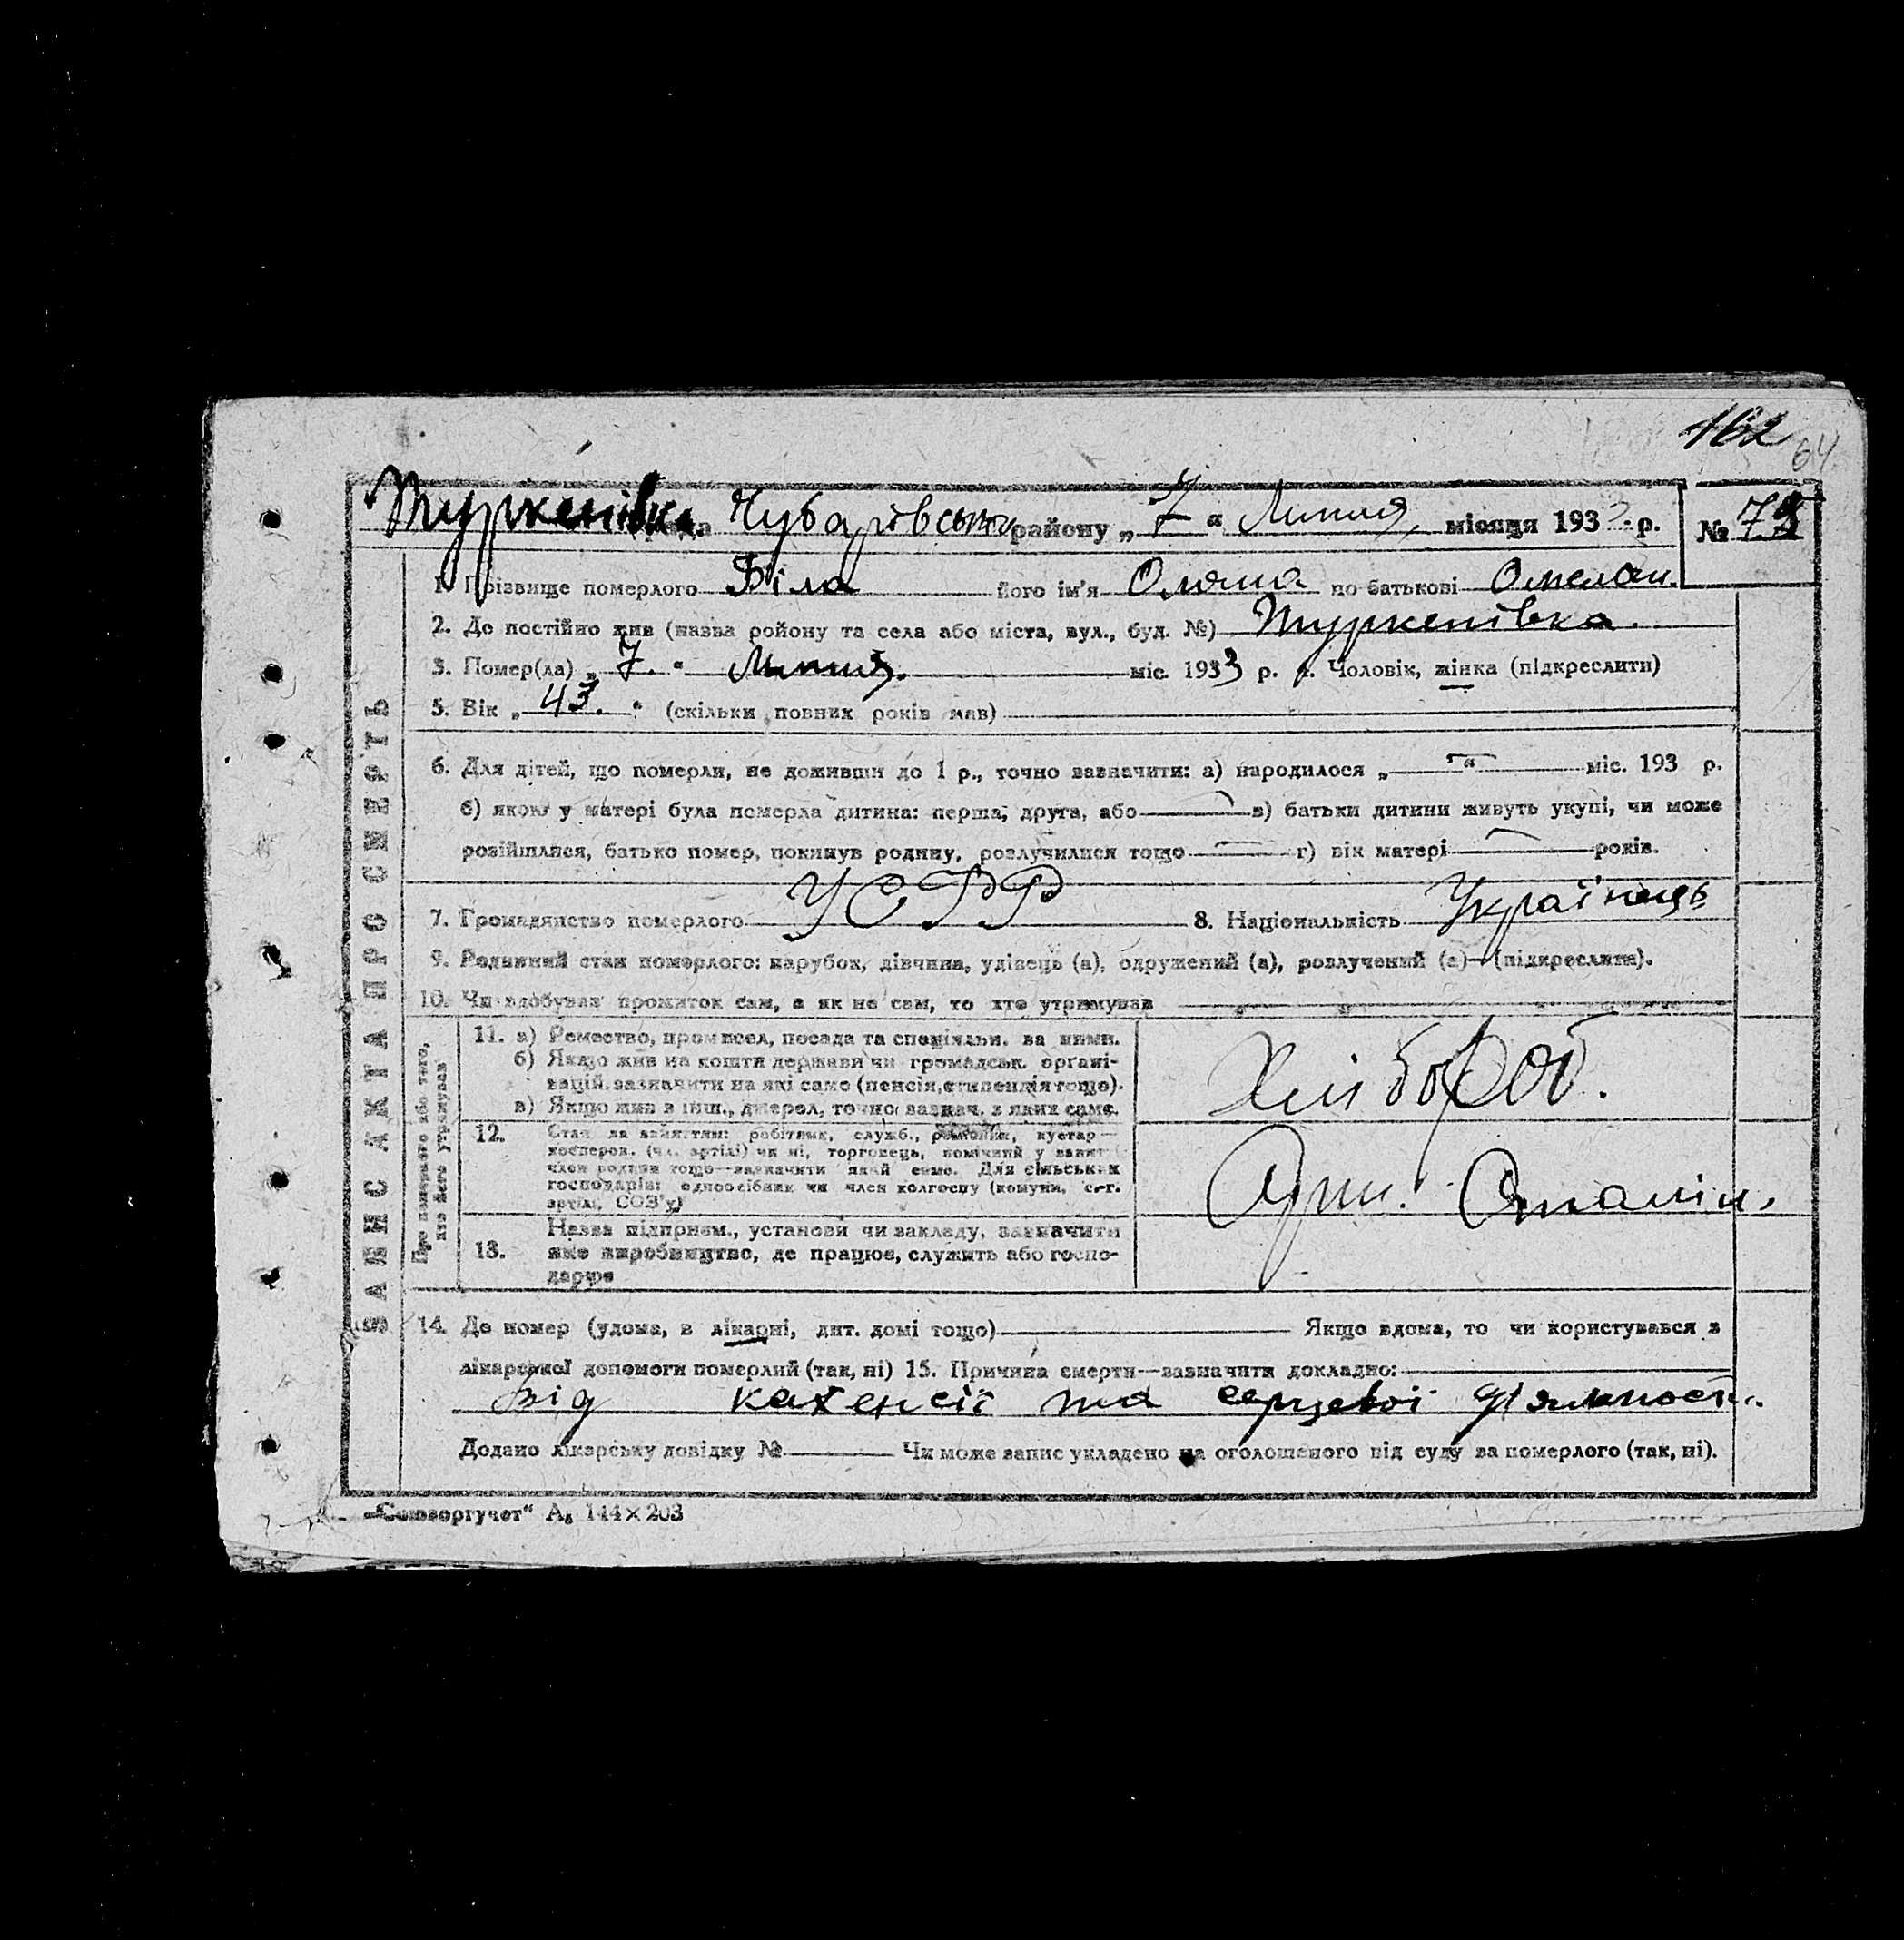 162
64
Туркенівка Чубарівського району „7“ Липня місяця 1933 р. № 73
ЗАПИС АКТА ПРО СМЕРТЬ
1. Прізвище померлого Біла його ім'я Оляна по батькові Омелян.
2. Де постійно жив (назва ройону та села або міста, вул., буд. №) Туркенівка.
3. Помер(ла) „7.“ Липня. міс. 1933 р. 4. Чоловік, жінка (підкреслити)
5. Вік „43.“ (скільки повних років мав)
6. Для дітей, що померли, не доживши до 1 р., точно зазначити: а) народилося „ “ міс. 193 р.
б) якою у матері була померла дитина: перша, друга, або в) батьки дитини живуть укупі, чи може
розійшлися, батько помер, покинув родину, розлучилися тощо г) вік матері років.
7. Громадянство померлого УСРР 8. Національність Українець
9. Родинний стан померлого: парубок, дівчина, удівець (а), одружений (а), розлучений (а)—(підкреслити).
10. Чи здобував прожиток сам, а як не сам, то хто утримував
Про померлого або того, хто його утримував
11. а) Ремество, промисел, посада та спеціяльн. за ними.
б) Якщо жив на кошти держави чи громадськ. органі-
зацій зазначити на які саме (пенсія, стипендія тощо).
в) Якщо жив з інш., джерел, точно зазнач. з яких саме.
Хлібороб.
12. Стан за заняттям: робітник, служб., кустар—
коопером. (чл. артілі) чи ні, торговець, помічний у занят
член родини тощо—зазначити який саме. Для сільських
господарів: одноосібник чи член колгоспу (комуни, с.-г.
артілі, СОЗ'у)
Арт. Сталін.
13. Назва підприєм., установи чи закладу, зазначити
яке виробництво, де працює, служить або госпо-
дарює
14. Де помер (удома, в лікарні, дит. домі тощо) Якщо вдома, то чи користувався з
лікарської допомоги померлий (так, ні) 15. Причина смерти—зазначити докладно:
від кахексії та серцевої діяльности.
Додано лікарську довідку № Чи може запис укладено на оголошеного від суду за померлого (так, ні).
„Союзоргучет“ А₅ 144×203